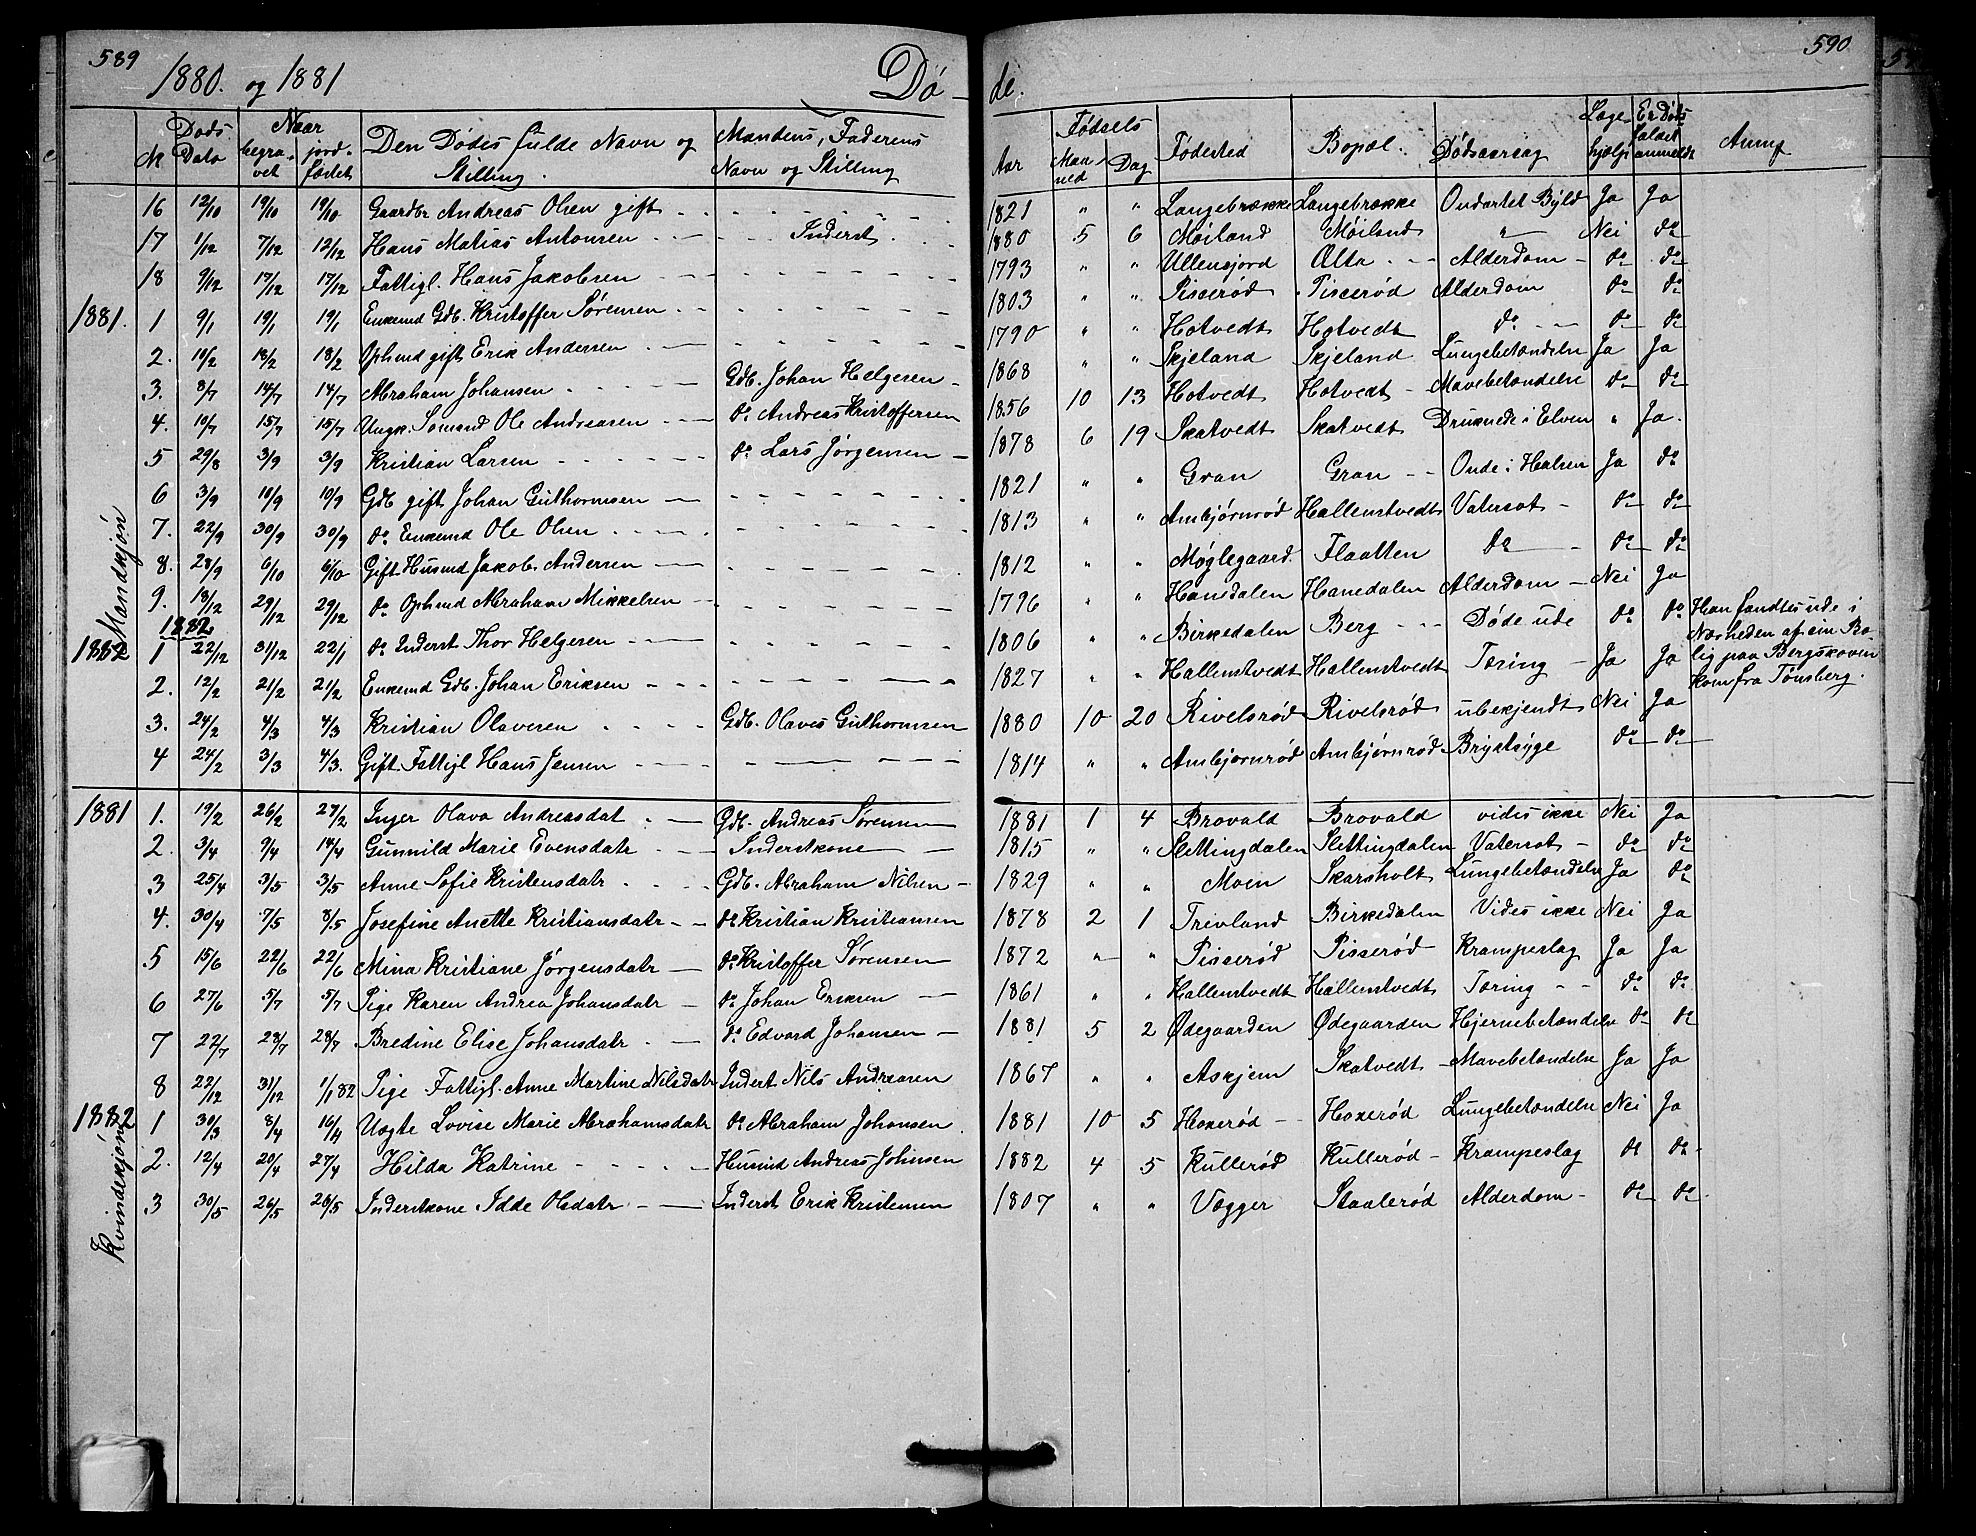 589
1880. og 1881
Dø-
No
Døds Dato
Naar
begra-vet
jord-fæstet
Den Dødes fulde Navn og Stilling.
Mandens, Faderens Navn og Stilling
16 12/10 19/10 19/10 Gaardbr Andreas Olsen gift
17 1/12 7/12 12/12 Hans Matias Antonsen Inderst
18 9/12 17/12 17/12 Fattigl. Hans Jakobsen
1881. 1 9/1 19/1 19/1 Enkemd Gdb. Kristoffer Sørensen
2. 10/2 18/2 18/2 Ophmd gift Erik Andersen
3. 8/7 14/7 14/7 Abraham Johansen Gdb. Johan Helgesen
4. 10/7 15/7 15/7 Ungk. Sømand Ole Andreasen do Andreas Kristoffersen
5 29/8 3/9 3/9 Kristian Larsen do Lars Jørgensen
6 3/9 10/9 10/9 Gdb gift Johan Guthormsen
7. 22/9 30/9 30/9 do Enkemd Ole Olsen
8. 28/9 6/10 6/10 Gift Husmd Jakob Andersen
9. 18/12 29/12 29/12 do Ophmd Abraham Mikkelsen
1882
1882 1 22/12 31/12 22/1 do Inderst Thor Helgesen
2. 12/2 21/2 21/2 Enkemd Gdb. Johan Eriksen
3. 24/2 4/3 4/3 Kristian Olavesen Gdb. Olaves Guthormsen
4 24/2 3/3 4/3. Gift Fattigl Hans Jensen
Mandkjøn
1881 1. 19/2 26/2 27/2 Inger Olava Andreasdat Gdb. Andreas Sørensen
2. 3/4 9/4 14/4 Gunnild Marie Evensdatr Inderstkone
3 25/4 3/5 3/5 Anne Sofie Kristensdatr Gdb. Abraham Nilsen
4. 30/4 7/5 8/5 Josefine Anette Kristiansdatr do Kristian Kristiansen
5 15/6 22/6 22/6 Mina Kristiane Jørgensdatr do Kristoffer Sørensen
6 27/6 5/7 5/7 Pige Karen Andrea Johansdatr do Johan Eriksen
7 22/7 28/7 28/7 Bredine Elise Johansdatr do Edvard Johansen
8 22/12 31/12 1/1 82 Pige Fattigl. Anne Martine Nilsdatr Inderst Nils Andreasen
1882 1 30/3 8/4 16/4 Uægte Lovise Marie Abrahamsdatr do Abraham Johansen
2. 12/4 20/4 27/4 Hilda Katrine Husmd Andreas Johnsen
3 30/5 26/5 26/5 Inderstkone Idde Olsdatr Inderst Erik Kristensen
Kvindekjøn
590
de.
Fødsels
Aar
Maa-ned
Dag
Fødested
Bopæl.
Dødsaarsag
Læge-hjælp
Er Døds faldet anmeldt
Anmf
1821 " " Langebrække Langebrække Ondartet Byld Ja Ja
1880 5 6 Møiland Møiland " Nei do
1793 " " Ullensjord Olta Alderdom do do
1803 " " Pisserød Pisserød Alderdom do do
1790 " " Hotvedt Hotvedt do do do
1868 " " Skjeland Skjeland Lungebetændelse Ja Ja
1856 10 13 Hotvedt Hotvedt Mavebetændelse do do
1878 6 19 Skatvedt Skatvedt Druknede i Elven " Ja.
1821 " " Gran Gran Onde i Halsen Ja do
1813 " " Ambjørnrød Hallenstvedt Vatersot do do
1812 " " Møglegaard. Flaatten do do do
1796 " " Hanedalen Hanedalen Alderdom Nei Ja
1806 " " Birkedalen Berg Døde ude do do Han fandtes ude i
Nærheden af sin Bo-
lig paa Bergskoven
kom fra Tønsberg.
1827 " " Hallenstvedt Hallenstvedt Tæring Ja Ja
1880 10 20 Rivelsrød Rivelsrød ubekjendt Nei Ja
1814 " " Ambjørnrød Ambjørnrød Brystsyge do do
1881 1 4 Brovald Brovald vides ikke Nei Ja
1815 " " Slettingdalen Slettingdalen Vatersot do do
1829 " " Moen Skarsholt Lungebetændelse Ja do
1878 2 1 Trevland Birkedalen Vides ikke Nei Ja
1872 " " Pisserød Pisserød Krampeslag Ja Ja
1861 " " Hallenstvedt Hallenstvedt Tæring do do.
1881 5 2 Ødegaarden Ødegaarden Hjernebetændelse do do
1867 " " Askjem Skatvedt Mavebetændelse Ja Ja
1881 10 5 Hoxerød Hoxerød Lungebetændelse Nei Ja
1882 4 5 Kullerød Kullerød Krampeslag do do
1807 " " Vægger Staalerød Alderdom do do